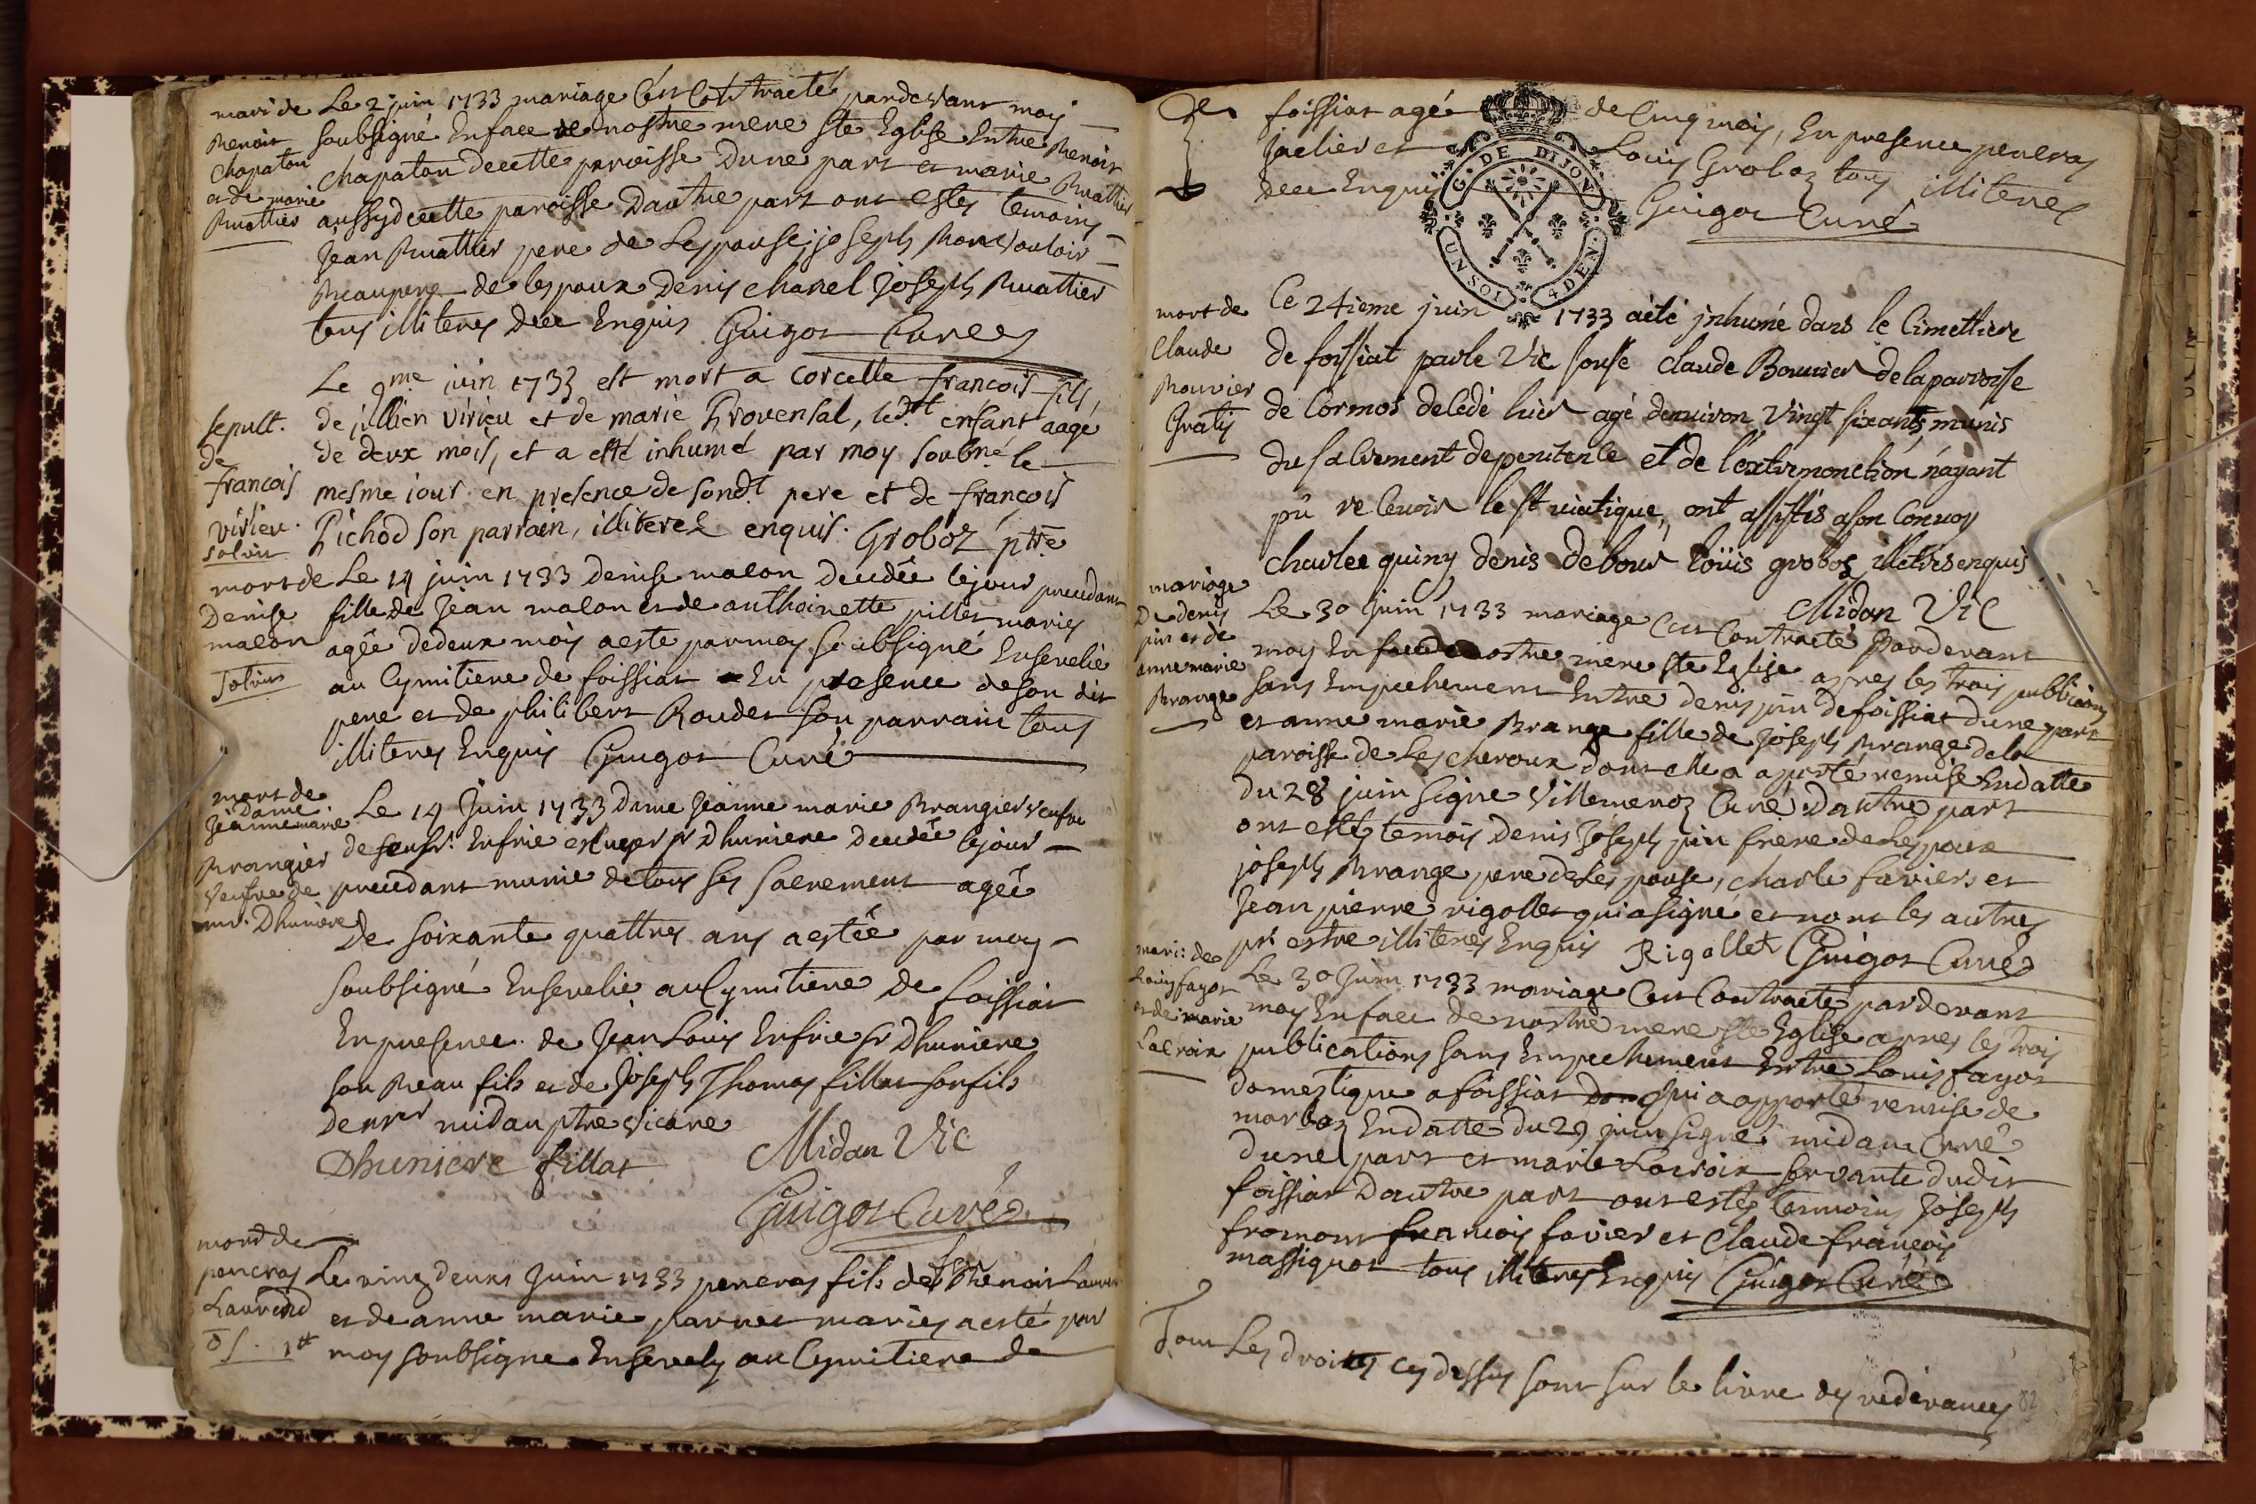 mari de
Benoit
Chapaton
et de marie
Buattier
Le 2 juin 1733 mariage c'est contracté pardevant moy
soubsigné en face de nostre mere Ste Eglise entre Benoit
Chapaton de cette paroisse dune part et marie Buattier
aussy de cette paroisse dautre part ont estés temoins
Jean Buattier pere de Lespouse, joseph
Beaupere de lespoux Denis chanel Joseph Buattier
tous illiteres de ce Enquis Guigot Curé
sepult.
de
francois
virieu.
solvit
Le 9me juin 1733 est mort a corcelle francois fils
de jullien virieu et de marie Provensal, led.t enfant aagé
de deux mois, et a esté inhumé par moy soubné le
mesme iour en presence de sond.t pere et de françois
Pichod son parrain, illiterez enquis. Groboz ptre
mort de
Denise
maçon
solvit
Le 14 juin 1733 Denise maçon decedée le jour precedant
fille de Jean maçon et de anthoinette pillet mariés
agée de deux mois a esté par moy soubsigné Ensevelie
au Cymitiere de foissiat En presence de son dit
pere et de philibert Roudet son parrain tous
illiteres Enquis Guigot Curé
mort de
Dame
Jeanne marie
Brangier
veufve de
mr. Dhuniere
Le 14 Juin 1733 Dame Jeanne marie Brangier veufve
de feu sr. Enfrie escuyer sr Dhuniere decedée le jour
precedant munie de tous ses sacrement agée
de soixante quattres ans a estée par moy
soubsigné Ensevelie au Cymitiere de foissiat
En presence de Jean Louis Enfrie sr Dhuniere
son Beau fils et de Joseph Thomas fillat son fils
de mr midan ptre vicaire
Dhuniere fillat Midan Vic
Guigot Curé
mort de
pancras
Laurend
1tt
Le vingt deuxe Juin 1733 peneras fils de Benoit Laurend
et de anne marie parnet mariés a esté par
moy soubsigné Ensevely au Cymitiere de
foissiat agé de Cinq mois, En presence peneras
Jaclier et Louis Groboz tous illiteres
de ce Enquis Guigot Curé
G. DE DIJON
UN SOL 4 DEN.
mort de
Claude
Bouvier
Gratis
Ce 24ieme juin 1733 a été jnhumé dans le Cimettiere
de foissiat par le Vic sousé Claude Bouvier de la parroisse
de Cormos decedé hier agé d'enuiron vingt six ants munis
du sacrement de penitence et de l'extremonction n'ayant
pû recevoir le st viatique, ont assistés a son convoy
Charle quiny denis debour loüis groboz illetrés enquis
Midan Vic
mariage
De denis
pin et de
anne marie
Brange
Le 30 juin 1733 mariage c'est Contracté Pardevant
moy En face de nostre mere Ste Eglise apres les trois publications
sans Empechement Entre denis pin de foissiat dune part
et anne marie Brange fille de Joseph Brange de la
paroisse de Lescheroux dont elle a apporté remise En datte
du 28 juin signé Villemenoz Curé Dautre part
ont estés temois Denis Joseph pin frere de Lespoux
joseph Brange pere de Lespouse, charle faviers et
Jean pierre rigollet qui a signé et nont les autres
pr estre illiteres Enquis Rigollet Guigot Curé
mari: de
Louis fayot
et de marie
Lacroix
Le 30 Juin 1733 mariage C'est Contracté pardevant
moy En face de nostre mere Ste Eglise apres les trois
publications sans Empechement Entre Louis fayot
domestique a foissiat qui a apporté remise de
marboz En datte du 29 juin signé midan Curé
dune part et marie Lacroix servante dudit
foissiat Dautre part ont estés temoins Joseph
fromont francois favier et Claude françois
massiquot tous illiteres Enquis Guigot Curé
Tout Les droits cy dessus sont sur le livre des redevances
82